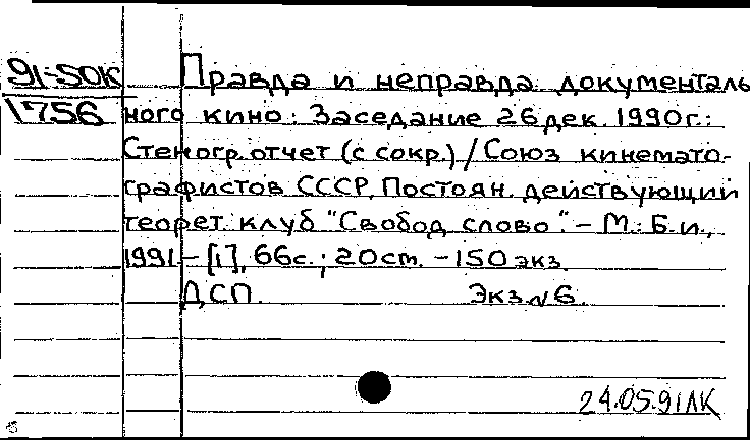 91-5ОК
1756
Правда и неправда документаль
ного кино: Заседание 26 дек. 1990г.:
Стеногр. отчет (с сокр.) / Союз кинемато-
графистов СССР, Постоян. действующий
теорет. клуб "Свобод. слово". - М.: Б.и.,
1991 - [1], 66с.; 20ст. - 150 экз.
ДСП. Экз. N 6.
24.05.91 ЛК